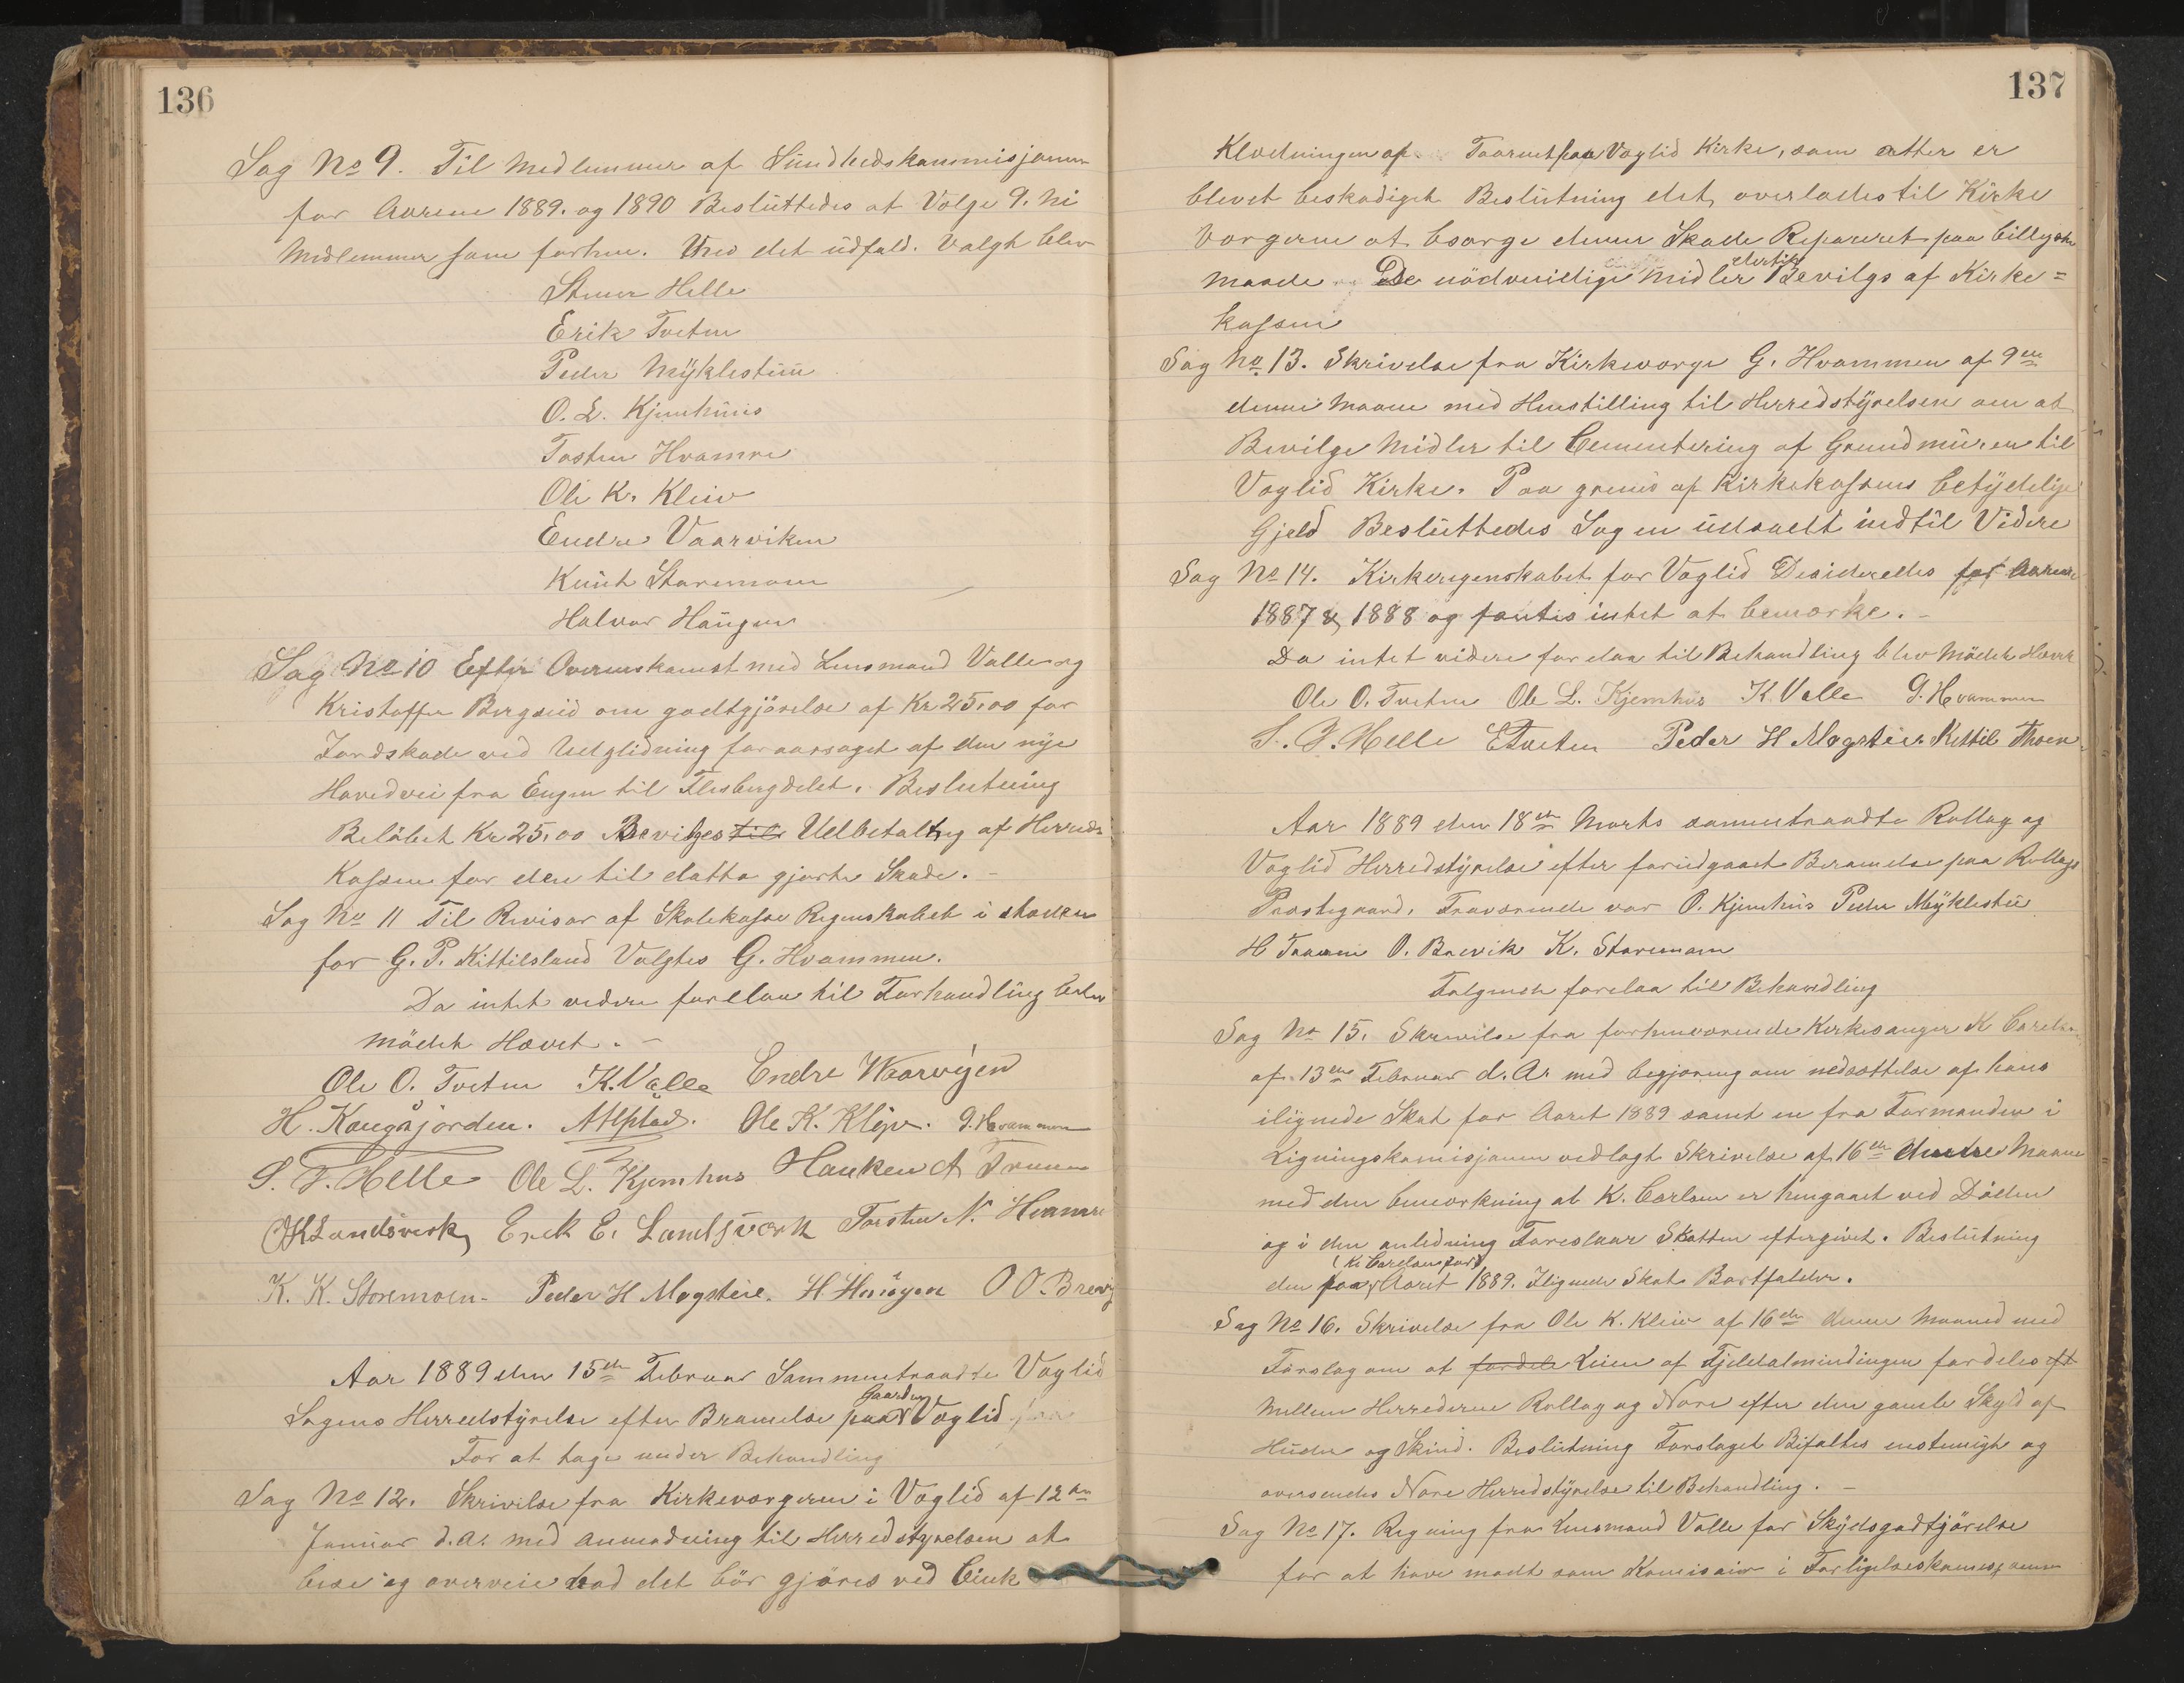 136
Sag No 9. Til Medlemmer af Sundhedskommisjonen
for Aarene 1889. og 1890 Besluttedes at Vælge 9. Ni
Medlemmer som forhen. Ved det udfald. Valgh blev
Stener Helle
Erik Tveten
Peder Myklestuu
O. L. Kjemhuus
Tosten Hvamre
Ole K. Kleiv
Endre Vaarviken
Knut Staremoen
Halvor Haugen
Sag No 10 Efter Overenskomst med Lensmand Valle og
Kristoffer Bergseid om godtgjørelse af Kr 25,00 for
Jordskade ved Udglidning foraarsaget af den nye
Hovedvei fra Eugen til Flesbergdelet. Beslutning
Beløbet Kr 25,00 Bevilges til Udbetaling af Herreds
Kassen for den til datto gjorte Skade. –
Sag No 11 Til Revisor af Skolekasse Regnskabet i steden
for G. P. Kittilsland Valgtes G. Hvammen.
Da intet videre forelaa til Forhandling blev
mødet Hævet. –
Ole O. Tveten K. Valle Endre Waarvigen
H. Kongsjorden. Ole K. Klejv. G. Hvammen
S. T. Helle Ole L. Kjemhus Hauken A Traaen
OK Landsverk Erik E. Landsværk Torsten N. Hvamre
K. K. Storemoen – Peder H Mogsteie. H Haugen O O. Brevig
Aar 1889 den 15de Februar Sammentraadte Væglid
Sogns Herredstyrelse efter Bramelse paa Gaarden Væglid
For at tage under Behandling
Sag No 12. Skrivelse fra Kirkeværgerne i Væglid af 12te
Januar d. A. med anmodning til Herredstyrelsen at
bese og overveie hvad det bør gjøres ved
137
Klædningen af Taarnet paa Væglid Kirke, som atter er
blevet beskadiget Beslutning det overlades til Kirke
værgerne at besørge denne Skade Repareret paa billigste
maade De nødvendige Midler dertil Bevilges af Kirke=
kassen
Sag No 13. Skrivelse fra Kirkeværge G. Hvammen af 9de
denne Maane med Henstilling til Herredstyrelsen om at
Bevilge Midler til Cementering af Grundmuren til
Væglid Kirke. Paa grund af Kirkekassens betydelige
Gjeld Besluttedes Sagen udsaett indtil Videre
Sag No 14. Kirkeregnskabet for Væglid Desideredes for Aarene
1887 & 1888 og fantes intet at bemærke. –
Da intet videre forelaa til Behandling blev Mødet Hævet
Ole O. Tveten Ole L. Kjemhus K. Valle G. Hvammen
S. T. Helle E Tveten Peder H Mogsteie Kittil Thoen
Aar 1889 den 18de Marts sammentraadte Rollag og
Væglid Herredstyrelse efter foriedgaaet Beramelse paa Rollags
Præstegaard. Fraværende var O. Kjemhus Peder Myklestu
H Traaen O. Brevik K. Staremoen
Følgende forelaa til Behandling
Sag No 15. Skrivelse fra forhenværende Kirkesanger K Carlsen
af 13de Februar d. A. med begjæring om nedsættelse af hans
ilignede Skat for Aaret 1889 samt en fra Formanden i
Ligningskomisjonen vedlagt Skrivelse af 16de denne Maane
med den bemærkning at K. Carlsen er hengaaet ved Døden
og i den anledning Foreslaar Skatten eftergivet. Beslutning
den paa (K. Carelsen for) Aaret 1889. Ilignede Skat Bortfalder.
Sag No 16. Skrivelse fra Ole K. Kleiv af 16de denne Maaned med
Forslag om at fordele Leien af Fjeldalmindingen fordeles eft
mellem Herrederne Rollag og Nore efter den gamle Skyld af
Huder og Skind. Beslutning Forslaget Bifaltes enstemigh og
oversendes Nore Herredstyrelse til Behandling. –
Sag No 17. Regning fra Lensmand Valle for Skydsgodtjørelse
for at have mødt som Komisær i Forligelseskomisjonen